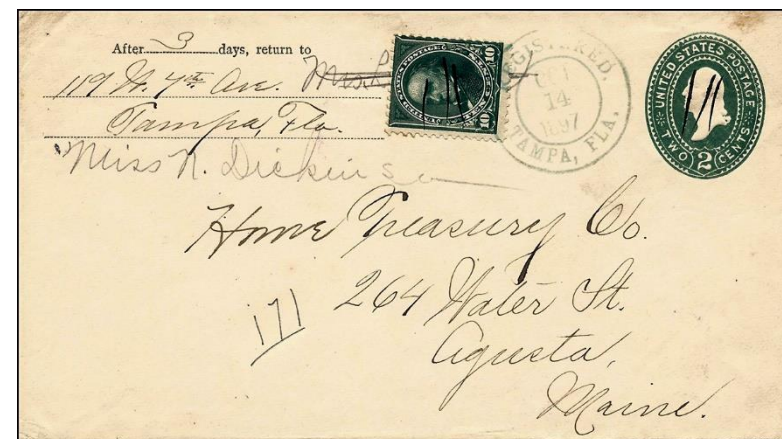 After 3 days, return to
119 W. 7th Ave.
Tampa, Fla.
Miss N. Dickinson
REGISTERED.
OCT
14
1897
TAMPA, FLA.
10 10
UNITED STATES POSTAGE
TWO 2 CENTS
Home Treasury Co.
264 Water St.
171
Agusta,
Maine.